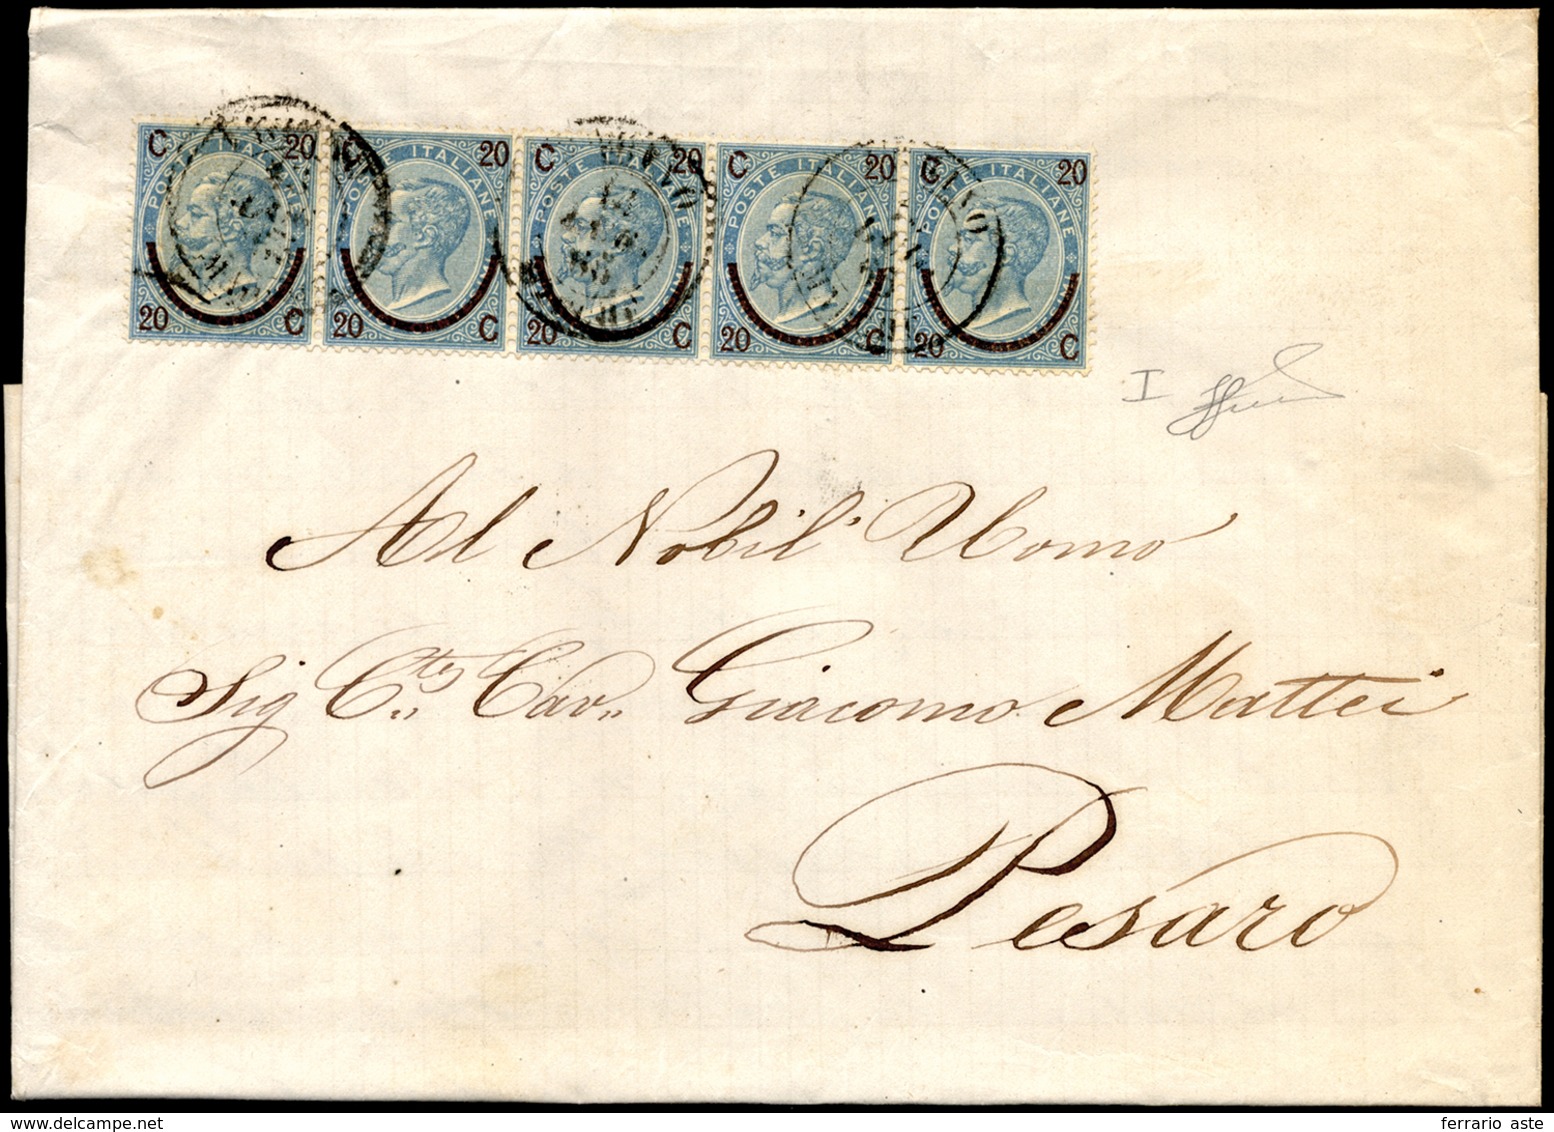 C 20 C 20 C 20 C 20 C 20
POSTE ITALIANE POSTE ITALIANE POSTE ITALIANE POSTE ITALIANE POSTE ITALIANE
20 C 20 C 20 C 20 C 20 C
I
Al Nobil' Uomo
Sig C.te Cav.. Giacomo Mattei
Pesaro
ferrario aste